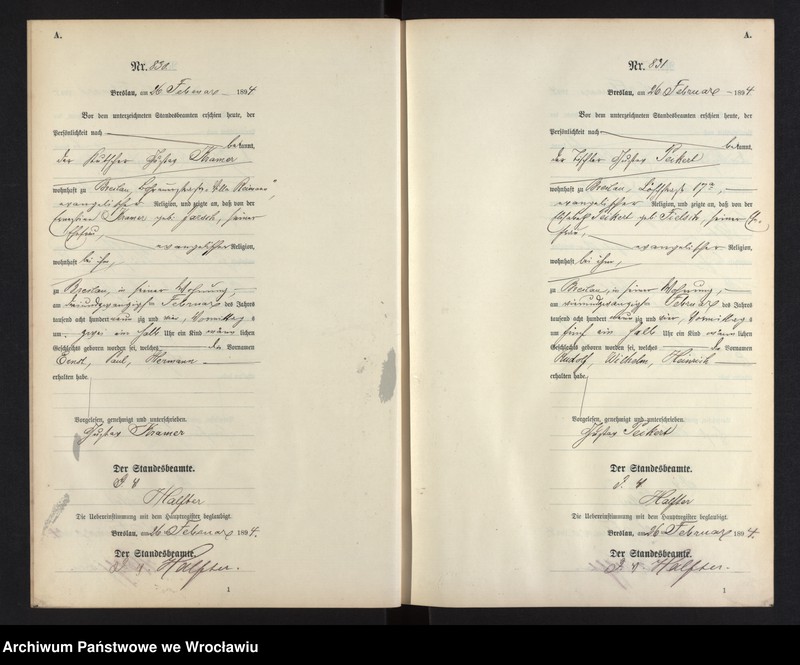 A.
Nr. 830
Breslau, am 26 Februar 1894
Vor dem unterzeichneten Standesbeamten erschien heute, der
Persönlichkeit nach
bekannt,
der Kutscher Gustav Kramer
wohnhaft zu Breslau,
evangelischer Religion, und zeigte an, daß von der
Kramer geb. seiner
Ehefrau,
evangelischer Religion,
wohnhaft bei ihm,
zu Breslau, in seiner Wohnung,
am Februar des Jahres
tausend acht hundert neunzig und vier, Vormittags
um ein halb Uhr ein Kind männlichen
Geschlechts geboren worden sei, welches die Vornamen
Ernst, Paul, Hermann
erhalten habe.
Vorgelesen, genehmigt und unterschrieben.
Gustav Kramer
Der Standesbeamte.
J. V.
Halfter
Die Uebereinstimmung mit dem Hauptregister beglaubigt.
Breslau, am 26 Februar 1894.
Der Standesbeamte.
J. V. Halfter.
1
A.
Nr. 831
Breslau, am 26 Februar 1894
Vor dem unterzeichneten Standesbeamten erschien heute, der
Persönlichkeit nach
bekannt,
der Tischler Gustav Peikert
wohnhaft zu Breslau,
evangelischer Religion, und zeigte an, daß von der
Peikert geb. seiner Ehe-
frau,
evangelischer Religion,
wohnhaft bei ihm,
zu Breslau, in seiner Wohnung,
am Februar des Jahres
tausend acht hundert neunzig und vier, Vormittags
um fünf ein halb Uhr ein Kind männlichen
Geschlechts geboren worden sei, welches die Vornamen
Rudolf, Wilhelm, Heinrich
erhalten habe.
Vorgelesen, genehmigt und unterschrieben.
Gustav Peikert
Der Standesbeamte.
J. V.
Halfter
Die Uebereinstimmung mit dem Hauptregister beglaubigt.
Breslau, am 26 Februar 1894.
Der Standesbeamte.
J. V. Halfter.
1
Archiwum Państwowe we Wrocławiu